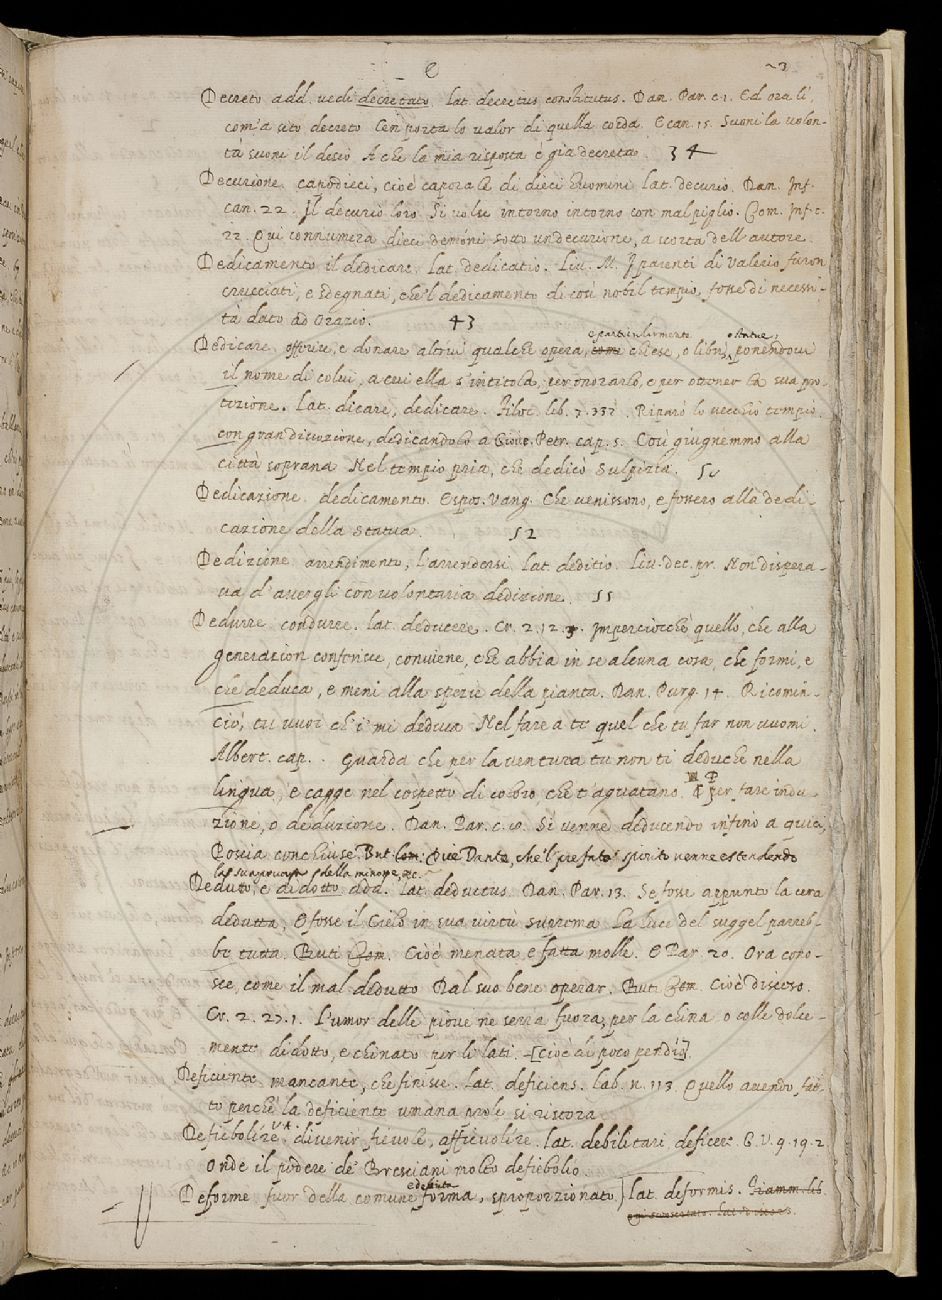 e 23
Decreto add. vedi decretato. lat. decretus constitutus. Dan. Par. c. 1. Ed ora lì,
com'a sito decreto Cen porta lo valor di quella corda. E can. 15. Suoni la volon-
tà suoni il desio A che la mia risposta è già decreta. 34
Decurione. capodieci, cioè caporale di dieci huomini lat. decurio. Dan. Inf.
can. 22. Il decurio loro Si volse intorno intorno con mal piglio. Com. Inf. c.
22. Qui connumera dieci demóni sotto un decurione, a scorta dell'autore.
Dedicamento il dedicare. lat. dedicatio. Liv. M. I parenti di Valerio furon
crucciati, e sdegnati, che'l dedicamento di così nobil tempio, fosse di necessi-
tà dato ad Orazio. 43
e particularmente o statue,
Dedicare offerire, e donare altrui qualche opera, come chiese, o libri, ponendovi
il nome di colui, a cui ella s'intitola, per onorarlo, e per ottener la sua pro-
tezione. Lat. dicare, dedicare. Filoc. lib. 7. 352. Riparò lo vecchio tempio
con gran divozione, dedicandolo a Giove. Petr. cap. 5. Così giugnemmo alla
città soprana Nel tempio pria, che dedicò Sulpizia.
Dedicazione. dedicamento. Espos. Vang. Che venissono, e fossero alla dedi-
cazione della statua. 52
Dedizione arrendimento, l'arrendersi lat. deditio. Liv. dec. pr. Non dispera-
va d'avergli con volontaria dedizione. 55
Dedurre condurre. lat. deducere. Cr. 2. 12. Imperciocchè quello, che alla
generazion conferisce, conviene, che abbia in se alcuna cosa, che formi, e
che deduca, e meni alla spezie della pianta. Dan. Purg. 14. Ricomin-
ciò, tu vuoi ch'i' mi deduca Nel fare a te quel che tu far non vuomi.
Albert. cap. . Guarda che per la ventura tu non ti deduche nella
lingua, e cagge nel cospetto di coloro che t'aguatano. per fare indu-
zione, o deduzione. Dan. Par. c. 8. Sì venne deducendo infino a quici,
Poscia conchiuse. But. Com. Dice Dante, che'l prefato spirito venne estendendo
la sua pruova della minore, ec.
Deduto, e didotto add. lat. deductus. Dan. Par. 13. Se fosse appunto la cera
dedutta, E fosse il Cielo in sua virtù suprema La luce del suggel parreb-
be tutta. Buti Com. Cioè menata, e fatta molle. E Par. 20. Ora cono-
sce, come il mal dedutto Dal suo bene operar. Buti Com. Cioè disceso.
Cr. 2. 27. 1. L'umor delle piove ne serra fuora, per la china o colle dolce-
mente didotto, e chinato per li lati. [Cioè di poco pendio].
Deficiente mancante, che finisce. lat. deficiens. lab. n. 113. Quello avendo fat-
to perchè la deficiente umana prole si ristora
Defiebolíre divenir fievole, affievolíre. lat. debilitari deficere. G. V. 9. 19. 2.
Onde il podere de' Bresciani molto defiebolio.
e debita
Deforme fuor della comune forma, sproporzionato, lat. deformis. Fiamm. lib.